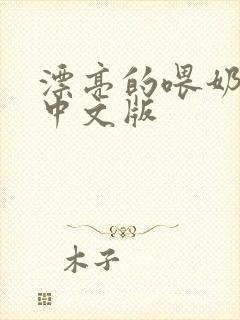 漂亮的喂奶
中文版
木子